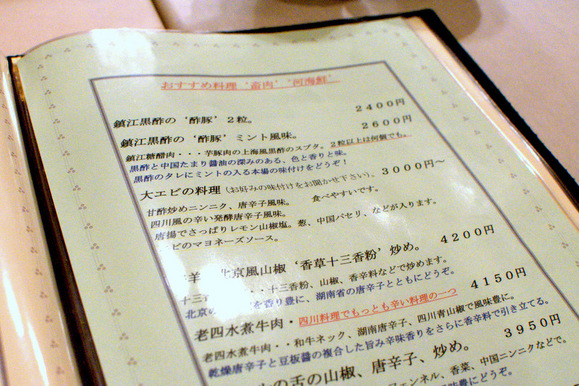 おすすめ料理‘畜肉’‘河海鮮’
鎮江黒酢の‘酢豚’2粒。 2400円
鎮江黒酢の‘酢豚’ミント風味。 2600円
鎮江糖醋肉・・・芋豚肉の上海風黒酢のスブタ。2粒以上は何個でも。
黒酢と中国たまり醤油の深みのある、色と香りと味。
黒酢のタレにミントの入る本場の味付けをどうぞ!
大エビの料理(お好みの味付けをお聞かせ下さい)、3000円〜
甘酢炒めニンニク、唐辛子風味。 食べやすいです。
四川風の辛い発酵唐辛子風味。
唐揚でさっぱりレモン山椒塩。葱、中国パセリ、などが入ります。
ビのマヨネーズソース。
羊 北京風山椒‘香草十三香粉’炒め。 4200円
十三 ・・・十三香粉、山椒、香辛料などで炒めます。
北京の を香り豊に、湖南省の唐辛子とともにどうぞ。
老四水煮牛肉・四川料理でもっとも辛い料理の一つ 4150円
老四水煮牛肉・・和牛ネック、湖南唐辛子、四川青山椒で風味豊に。
乾燥唐辛子と豆板醤の複合した旨み辛味香りをさらに香辛料で引き立てる。
の舌の山椒、唐辛子、炒め。 3950円
フェンネル、香菜、中国ニンニクなどで。
をどうぞ。